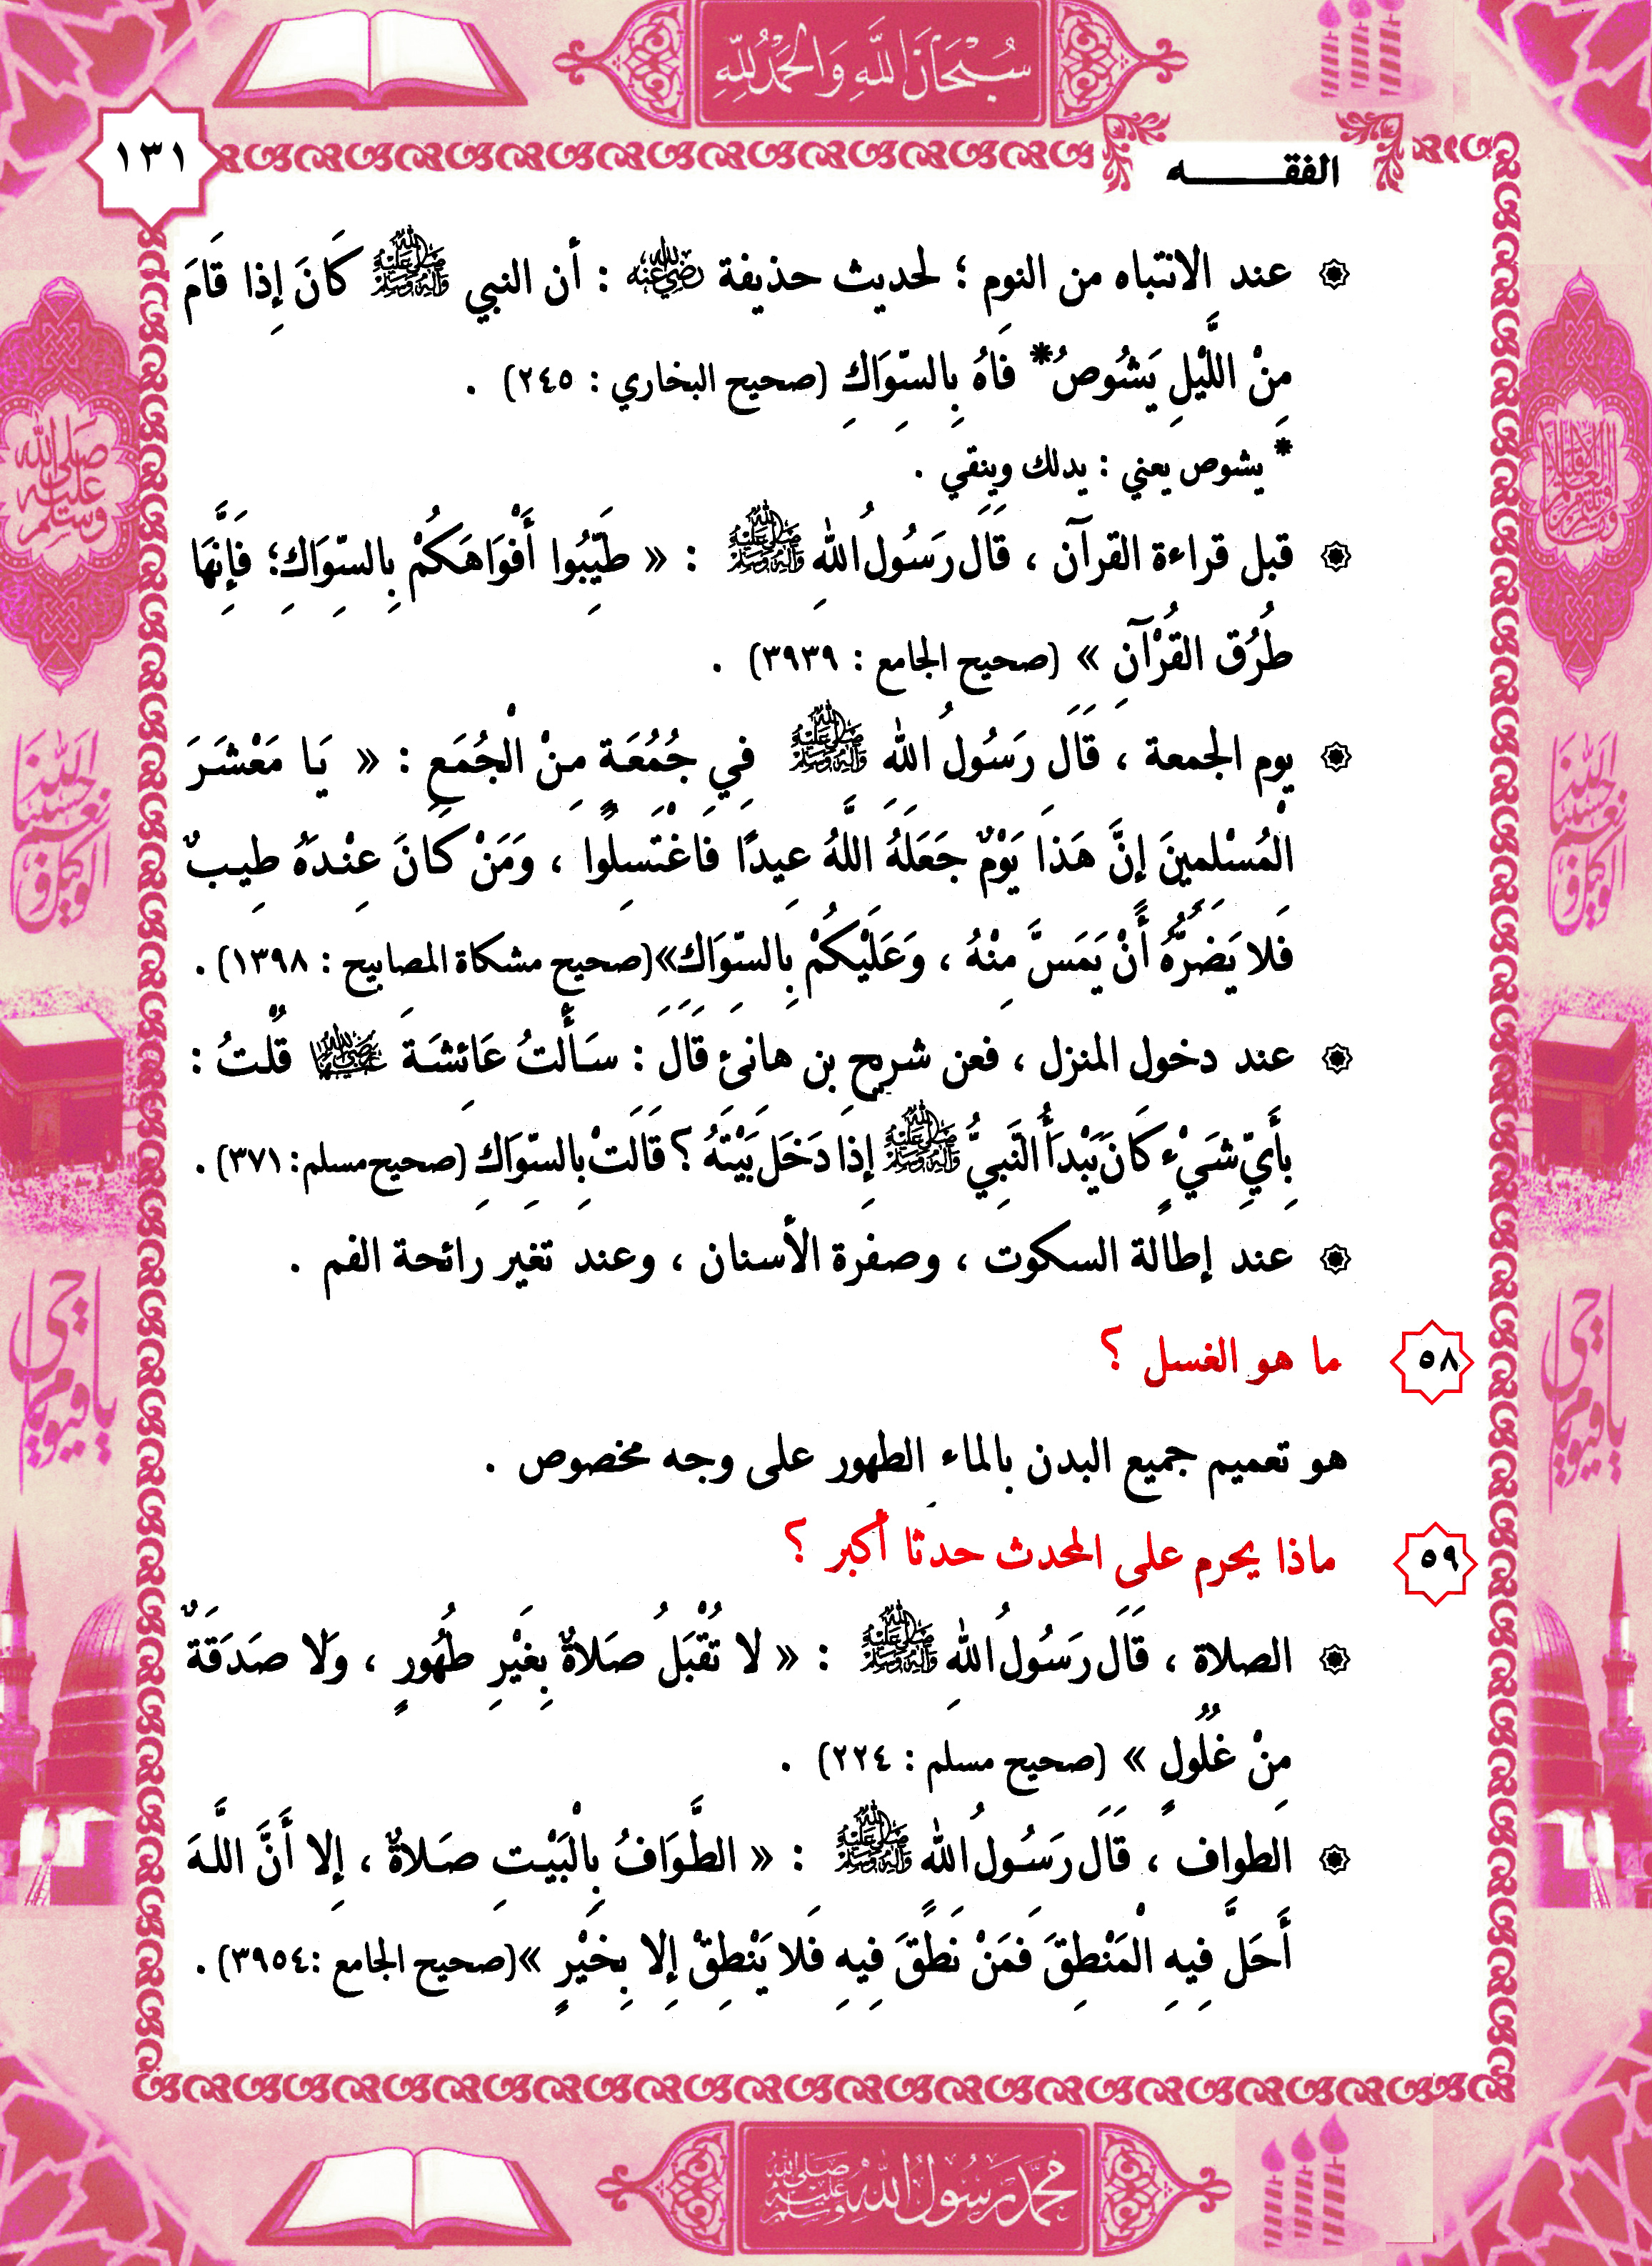 سُبْحَانَ اللَّهِ وَالْحَمْدُ لِلَّهِ
١٣١
الفقـــــه
عند الانتباه من النوم ؛ لحديث حذيفة رضي الله عنه : أن النبي ﷺ كَانَ إِذا قَامَ
مِنْ اللَّيْلِ يَشُوصُ* فَاهُ بِالسِّوَاكِ (صحيح البخاري : ٢٤٥) .
* يشوص يعني : يدلك وينقي .
قبل قراءة القرآن ، قَالَ رَسُولُ اللهِ ﷺ : « طَيِّبُوا أَفْوَاهَكُمْ بِالسِّوَاكِ؛ فَإِنَّهَا
طُرُق القُرْآنِ » (صحيح الجامع : ٣٩٣٩) .
يوم الجمعة ، قَالَ رَسُولُ اللهِ ﷺ فِي جُمُعَةٍ مِنْ الْجُمَعِ : « يَا مَعْشَرَ
الْمُسْلِمِينَ إِنَّ هَذَا يَوْمٌ جَعَلَهُ اللَّهُ عِيدًا فَاغْتَسِلُوا ، وَمَنْ كَانَ عِنْدَهُ طِيبٌ
فَلا يَضُرُّهُ أَنْ يَمَسَّ مِنْهُ ، وَعَلَيْكُمْ بِالسِّوَاكِ»(صحيح مشكاة المصابيح : ١٣٩٨) .
عند دخول المنزل ، فعن شريح بن هانئ قَالَ : سَأَلْتُ عَائِشَةَ رضي الله عنها قُلْتُ :
بِأَيِّ شَيْءٍ كَانَ يَبْدَأُ النَّبِيُّ ﷺ إِذَا دَخَلَ بَيْتَهُ ؟ قَالَتْ بِالسِّوَاكِ (صحيح مسلم: ٣٧١) .
عند إطالة السكوت ، وصفرة الأسنان ، وعند تغير رائحة الفم .
٥٨ ما هو الغسل ؟
هو تعميم جميع البدن بالماء الطهور على وجه مخصوص .
٥٩ ماذا يحرم على المحدث حدثا أكبر ؟
الصلاة ، قَالَ رَسُولُ اللهِ ﷺ : « لا تُقْبَلُ صَلاةٌ بِغَيْرِ طُهُورٍ ، وَلا صَدَقَةٌ
مِنْ غُلُولٍ » (صحيح مسلم : ٢٢٤) .
الطواف ، قَالَ رَسُولُ اللهِ ﷺ : « الطَّوَافُ بِالْبَيْتِ صَلاةٌ ، إِلا أَنَّ اللَّهَ
أَحَلَّ فِيهِ الْمَنْطِقَ فَمَنْ نَطَقَ فِيهِ فَلا يَنْطِقْ إِلا بِخَيْرٍ »(صحيح الجامع :٣٩٥٤) .
صلى الله عليه وسلم
حسبنا الله ونعم الوكيل
يا حي يا قيوم
حسبنا الله ونعم الوكيل
يا حي يا قيوم
محمد رسول الله صلى الله عليه وسلم